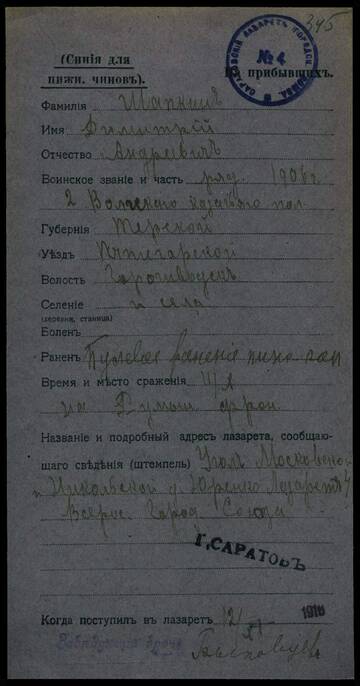 345
(Синія для
нижн. чиновъ).
прибывшихъ.
№ 4
Фамилія Шапкинъ
Имя Димитрій
Отчество Андреевичъ
Воинское званіе и часть ряд. 1906 г
2 Волгскаго казачьяго пол
Губернія Терской
Уѣздъ Пятигорской
Волость
Селеніе и села
(деревня, станица)
Боленъ
Раненъ Пулевое раненіе
Время и мѣсто сраженія
на Румын фрон
Названіе и подробный адресъ лазарета, сообщаю-
щаго свѣдѣнія (штемпель) Уголъ Московской
и Никольской д Юренко Лазаретъ
Всерос. Город Союза
Г. САРАТОВЪ
Когда поступилъ въ лазаретъ 12/XI 1916